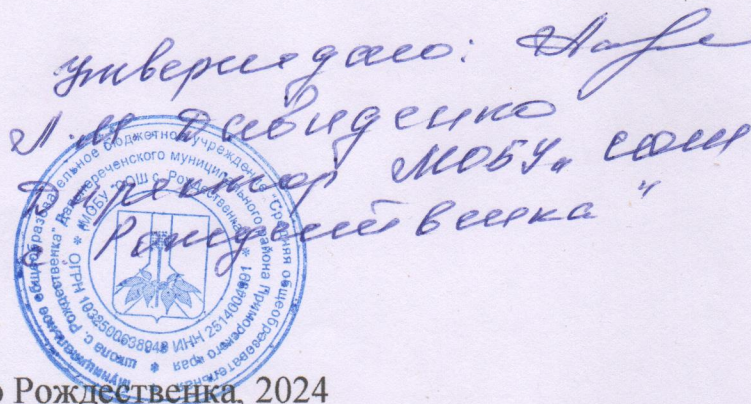 Утверждаю:
Л.М Давиденко
Директор МОБУ „ СОШ
с. Рождественка "
Муниципальное общеобразовательное бюджетное учреждение "Средняя общеобразовательная школа с. Рождественка" Дальнереченского муниципального района Приморского края
МОБУ "СОШ с. Рождественка"
ОГРН 1032500638948 ИНН 2514004891
о Рождественка, 2024